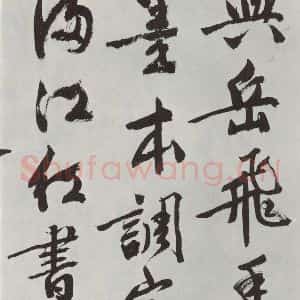 與岳飛手
墨本調寄
满江红書
Shufawang.cn